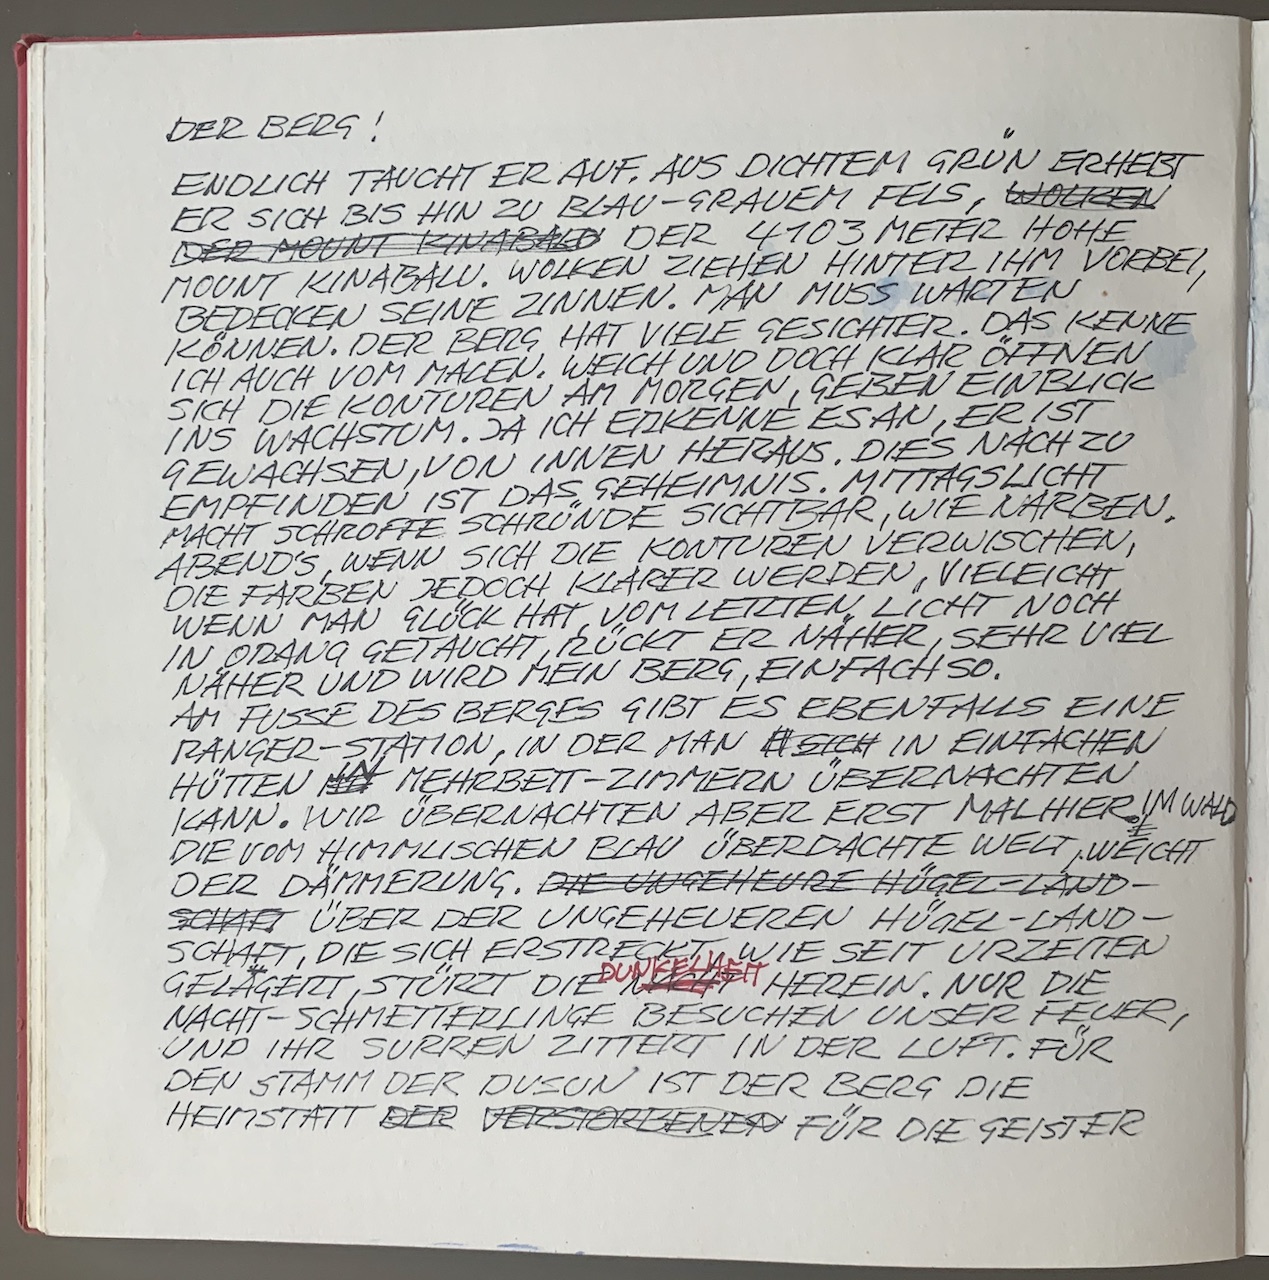 DER BERG!
ENDLICH TAUCHT ER AUF. AUS DICHTEM GRÜN ERHEBT
ER SICH BIS HIN ZU BLAU-GRAUEM FELS, WOLKEN
DER MOUNT KINABALU DER 4103 METER HOHE
MOUNT KINABALU. WOLKEN ZIEHEN HINTER IHM VORBEI,
BEDECKEN SEINE ZINNEN. MAN MUSS WARTEN
KÖNNEN. DER BERG HAT VIELE GESICHTER. DAS KENNE
ICH AUCH VOM MALEN. WEICH UND DOCH KLAR ÖFFNEN
SICH DIE KONTUREN AM MORGEN, GEBEN EINBLICK
INS WACHSTUM. JA ICH ERKENNE ES AN, ER IST
GEWACHSEN, VON INNEN HERAUS. DIES NACH ZU
EMPFINDEN IST DAS GEHEIMNIS. MITTAGSLICHT
MACHT SCHROFFE SCHRÜNDE SICHTBAR, WIE NARBEN.
ABEND'S, WENN SICH DIE KONTUREN VERWISCHEN,
DIE FARBEN JEDOCH KLARER WERDEN, VIELEICHT
WENN MAN GLÜCK HAT, VOM LETZTEN LICHT NOCH
IN ORANG GETAUCHT, RÜCKT ER NÄHER, SEHR VIEL
NÄHER UND WIRD MEIN BERG, EINFACH SO.
AM FUSSE DES BERGES GIBT ES EBENFALLS EINE
RANGER-STATION, IN DER MAN SICH IN EINFACHEN
HÜTTEN IN MEHRBETT-ZIMMERN ÜBERNACHTEN
KANN. WIR ÜBERNACHTEN ABER ERST MAL HIER. IM WALD
DIE VOM HIMMLISCHEN BLAU ÜBERDACHTE WELT, WEICHT
DER DÄMMERUNG. DIE UNGEHEURE HÜGEL-LAND-
SCHAFT ÜBER DER UNGEHEUEREN HÜGEL-LAND-
SCHAFT, DIE SICH ERSTRECKT, WIE SEIT URZEITEN
GELAGERT, STÜRZT DIE NACHT DUNKELHEIT HEREIN. NUR DIE
NACHT-SCHMETTERLINGE BESUCHEN UNSER FEUER,
UND IHR SURREN ZITTERT IN DER LUFT. FÜR
DEN STAMM DER DUSUN IST DER BERG DIE
HEIMSTATT DER VERSTORBENEN FÜR DIE GEISTER